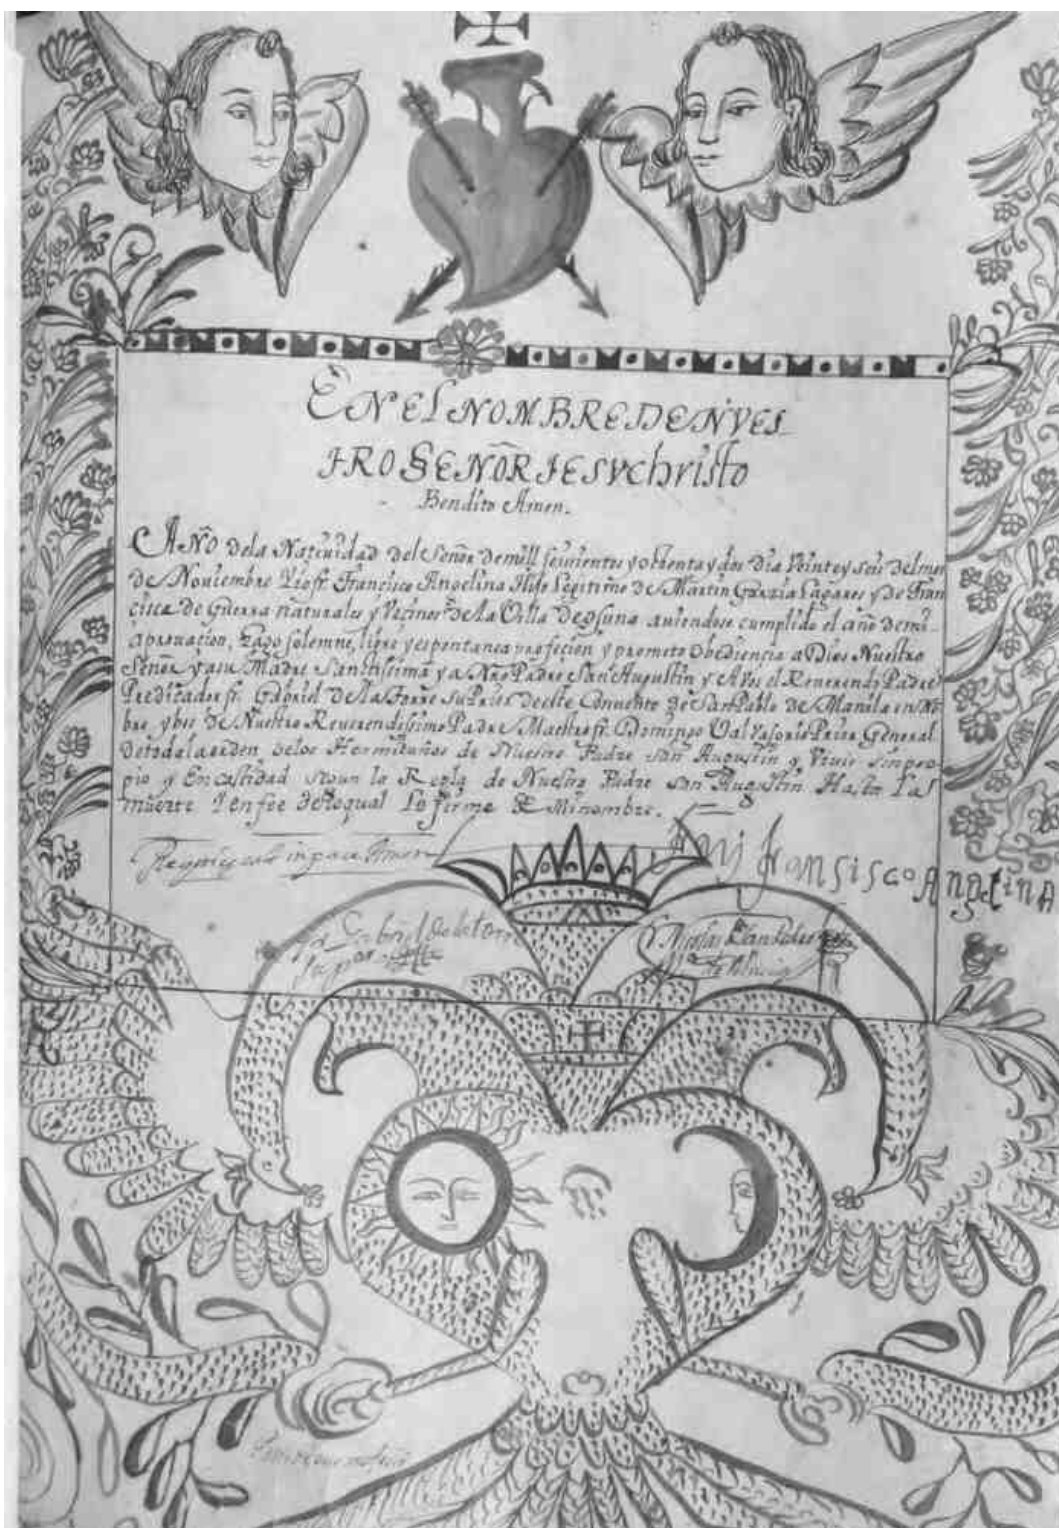 EN EL NOMBRE DE NVES
TRO SEÑOR IESVChristo
Bendito Amen.
AÑO dela Natiuidad del Señor demill seiscientos y ochenta y dos Dia Veinte y seis delmes
de Nouiembre Yo fr. Francisco Angelina Hijo Legitimo de Martin Garzia Lagares y de Fran
cisca de Guerra naturales y Vezinos de La Villa de osuna auiendose cumplido el año demi
aprouacion, Hago solemne, libre y espontanea profecion y prometo obediencia a Dios Nuestro
Señor y asu Madre Santissima y a Nro Padre San Augustin y A Vos el Reuerendo Padre
Predicador fr. Gabriel de La Torre su Prior deeste Conuento de San Pablo de Manila en No
bre y vez de Nuestro Reuerendissimo Padre Maestro fr. Domingo Valvasorio Prior General
detoda la orden delos Hermitaños de Nuestro Padre san Augustin y Viuir sin pro
pio y En castidad segun la Regla de Nuestro Padre san Augustin Hasta La
muerte Y en fee de Loqual Lo firme de Mi nombre.
Requiescat in pace Amen
Fray fransisco Angelina
fr. Gabriel de la torre
Nicolas